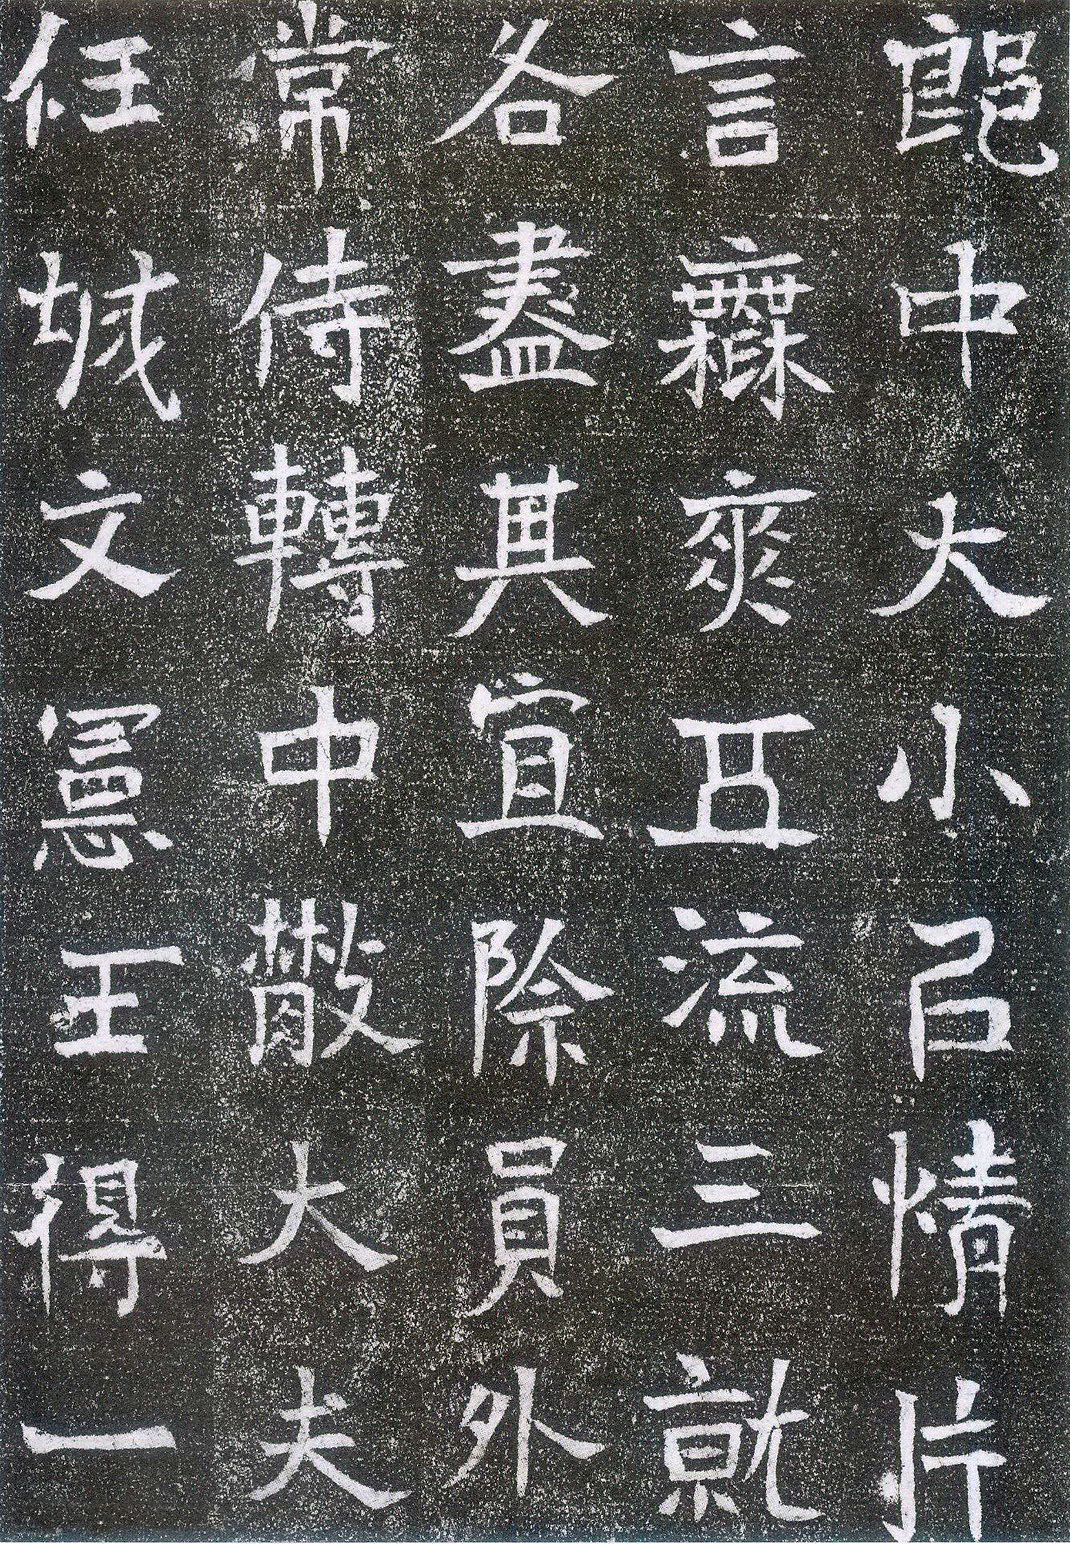 郎中大小㠯情片
言無爽五流三就
各盡其宜除員外
常侍轉中散大夫
任城文憲王得一